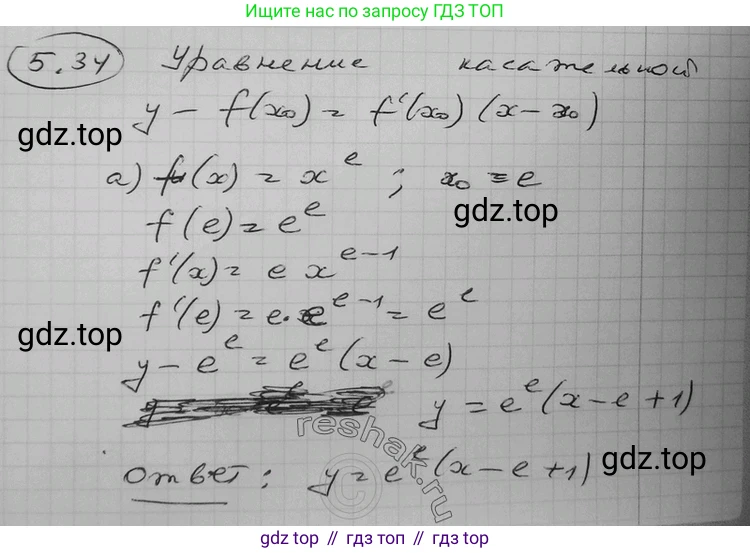 Ищите нас по запросу ГДЗ ТОП
5.34 Уравнение касательной
y - f(x₀) = f'(x₀) (x - x₀)
gdz.top
а) f(x) = x^e ; x₀ = e
gdz.top
f(e) = e^e
f'(x) = e x^(e-1)
f'(e) = e · e^(e-1) = e^e
gdz.top
y - e^e = e^e (x - e)
y = e^e (x - e + 1)
gdz.top
reshak.ru
Ответ: y = e^e (x - e + 1)
gdz.top // гдз топ // gdz.top // гдз.top